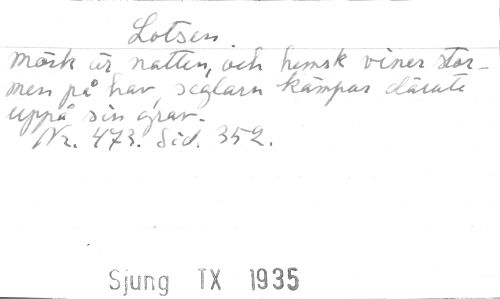 Lotsen.
mörk är natten, och hemsk viner stor-
men på hav, seglarn kämpar därute
uppå sin grav.
Nr. 473. Sid. 352.
Sjung TX 1935